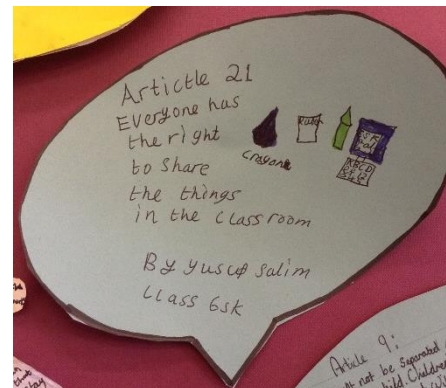 Artictle 21
Everyone has
the right
to share
the things
in the classroom
Crayons
By Yusuf Salim
Class 6sk
Article 9:
not be separated
child. Children